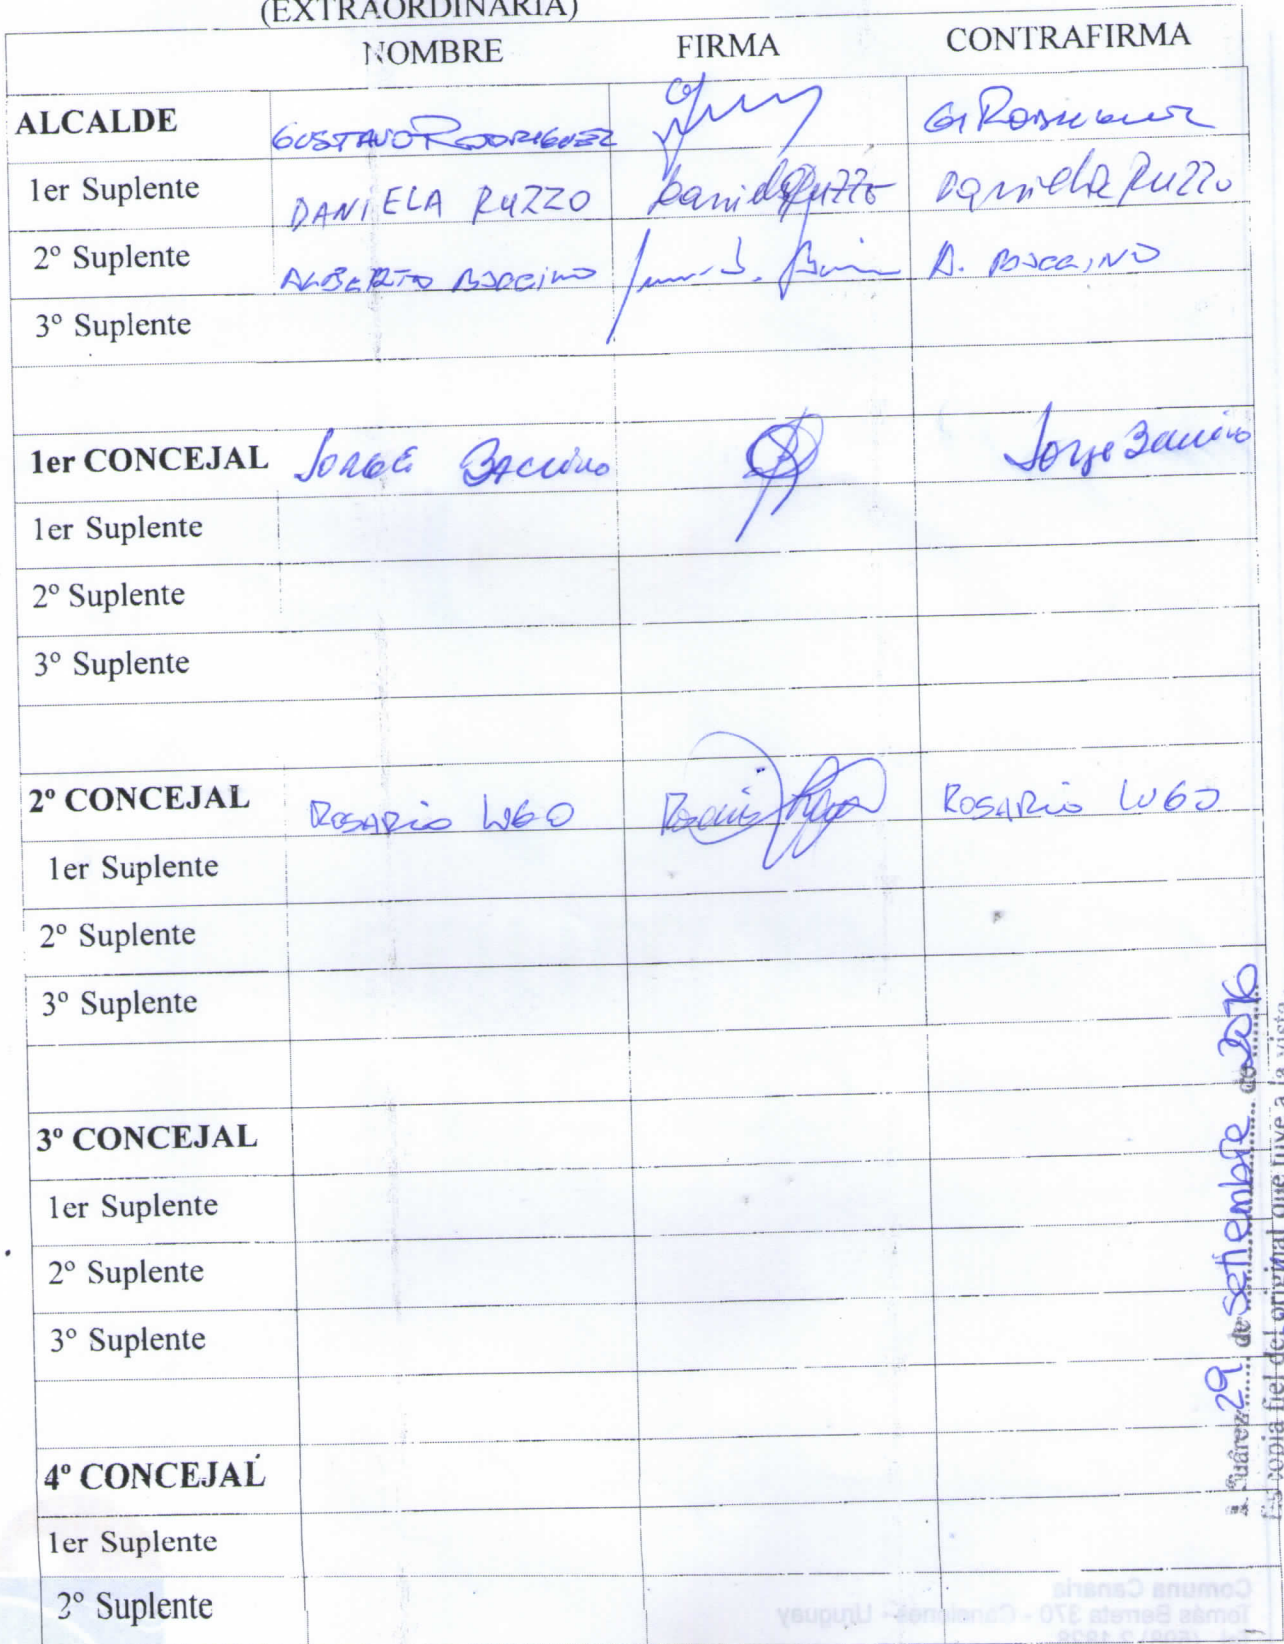 (EXTRAORDINARIA)
NOMBRE FIRMA CONTRAFIRMA
ALCALDE GUSTAVO RODRIGUEZ G. Rodriguez
1er Suplente DANIELA RUZZO Daniela Ruzzo Daniela Ruzzo
2º Suplente ALBERTO A.
3º Suplente
1er CONCEJAL JORGE Baccino Jorge Baccino
1er Suplente
2º Suplente
3º Suplente
2º CONCEJAL ROSARIO LUGO Rosario Lugo ROSARIO LUGO
1er Suplente
2º Suplente
3º Suplente
3º CONCEJAL
1er Suplente
2º Suplente
3º Suplente
4º CONCEJAL
1er Suplente
2º Suplente
Suárez 29 de Setiembre de 2016
Es copia fiel del original que tuve a la vista
Comuna Canaria
Tomás Berreta 370 - Canelones - Uruguay